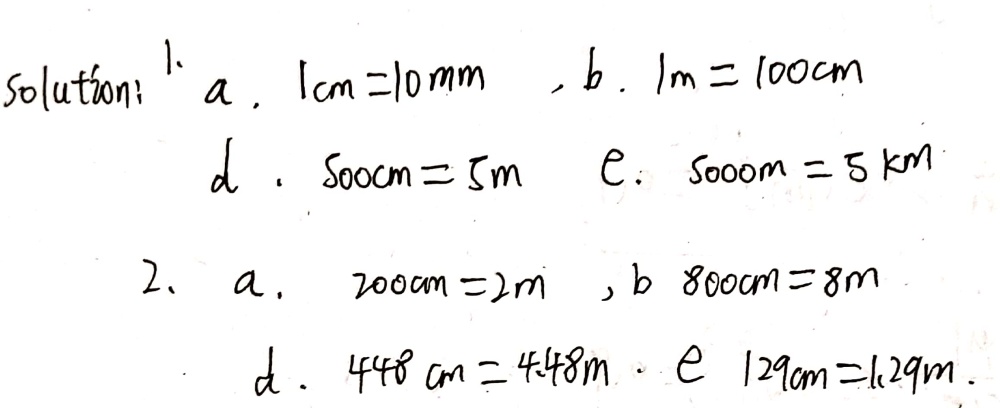 Solution: 1. a. 1cm=10mm , b. 1m=100cm
d. 500cm=5m e. 5000m=5km
2. a. 200cm=2m , b 800cm=8m
d. 448cm=4.48m. e 129cm=1.29m.